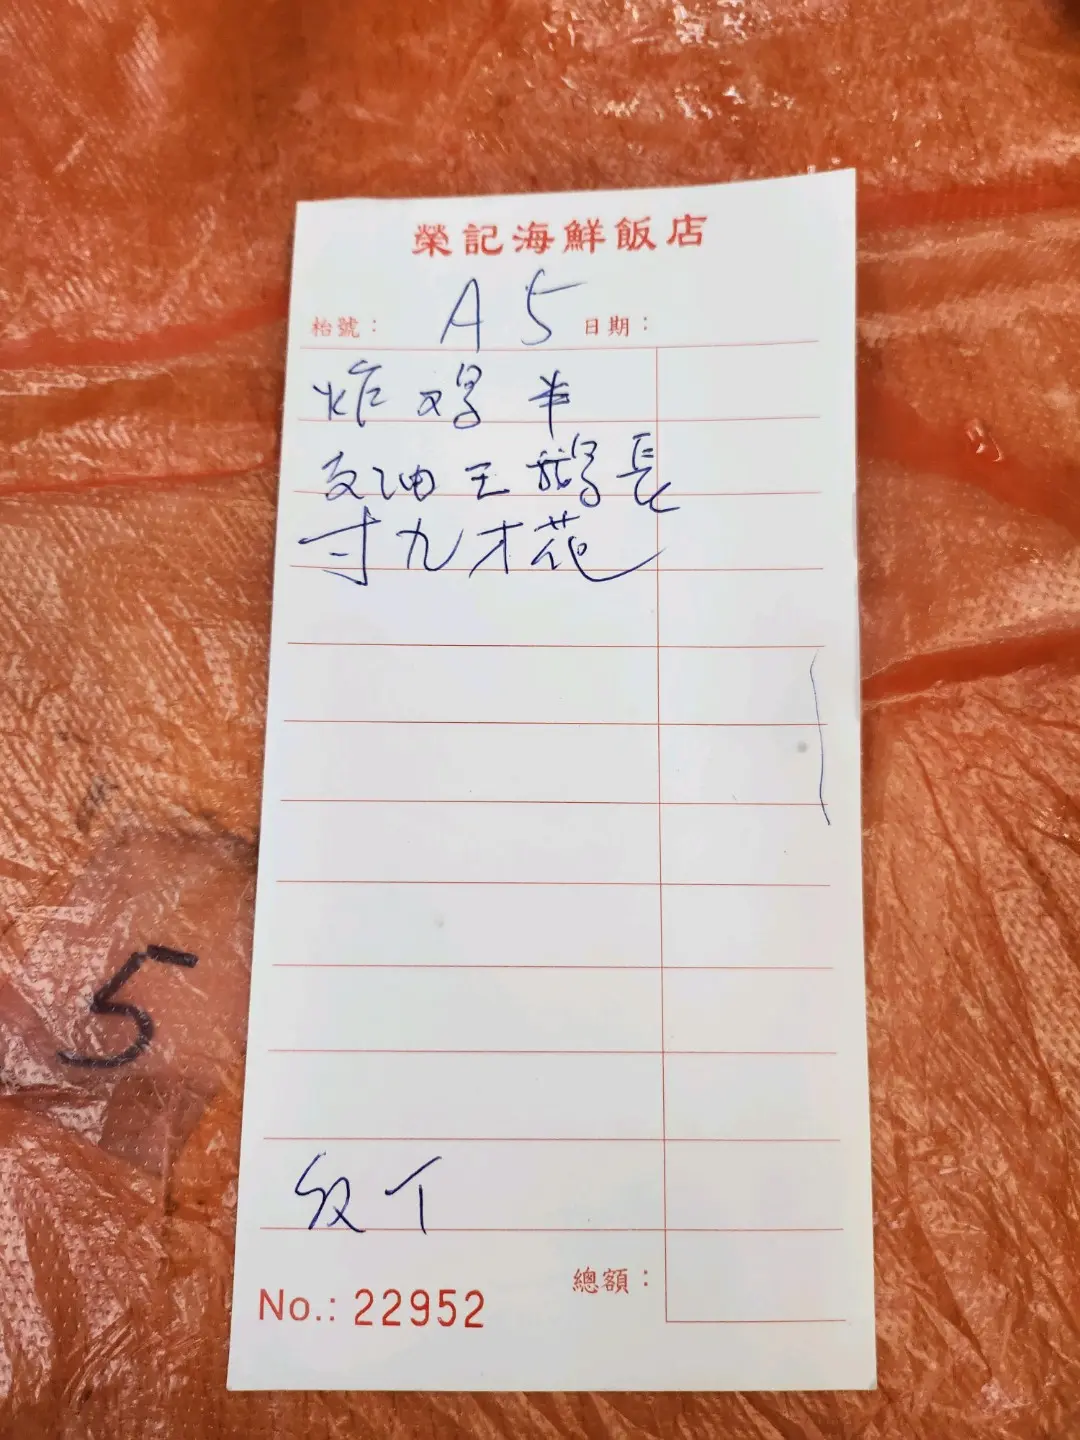 榮記海鮮飯店
枱號： A5 日期：
炸鸡半
豉油王鵝長
寸九才花
Ⅸ丁
總額：
No.: 22952
5